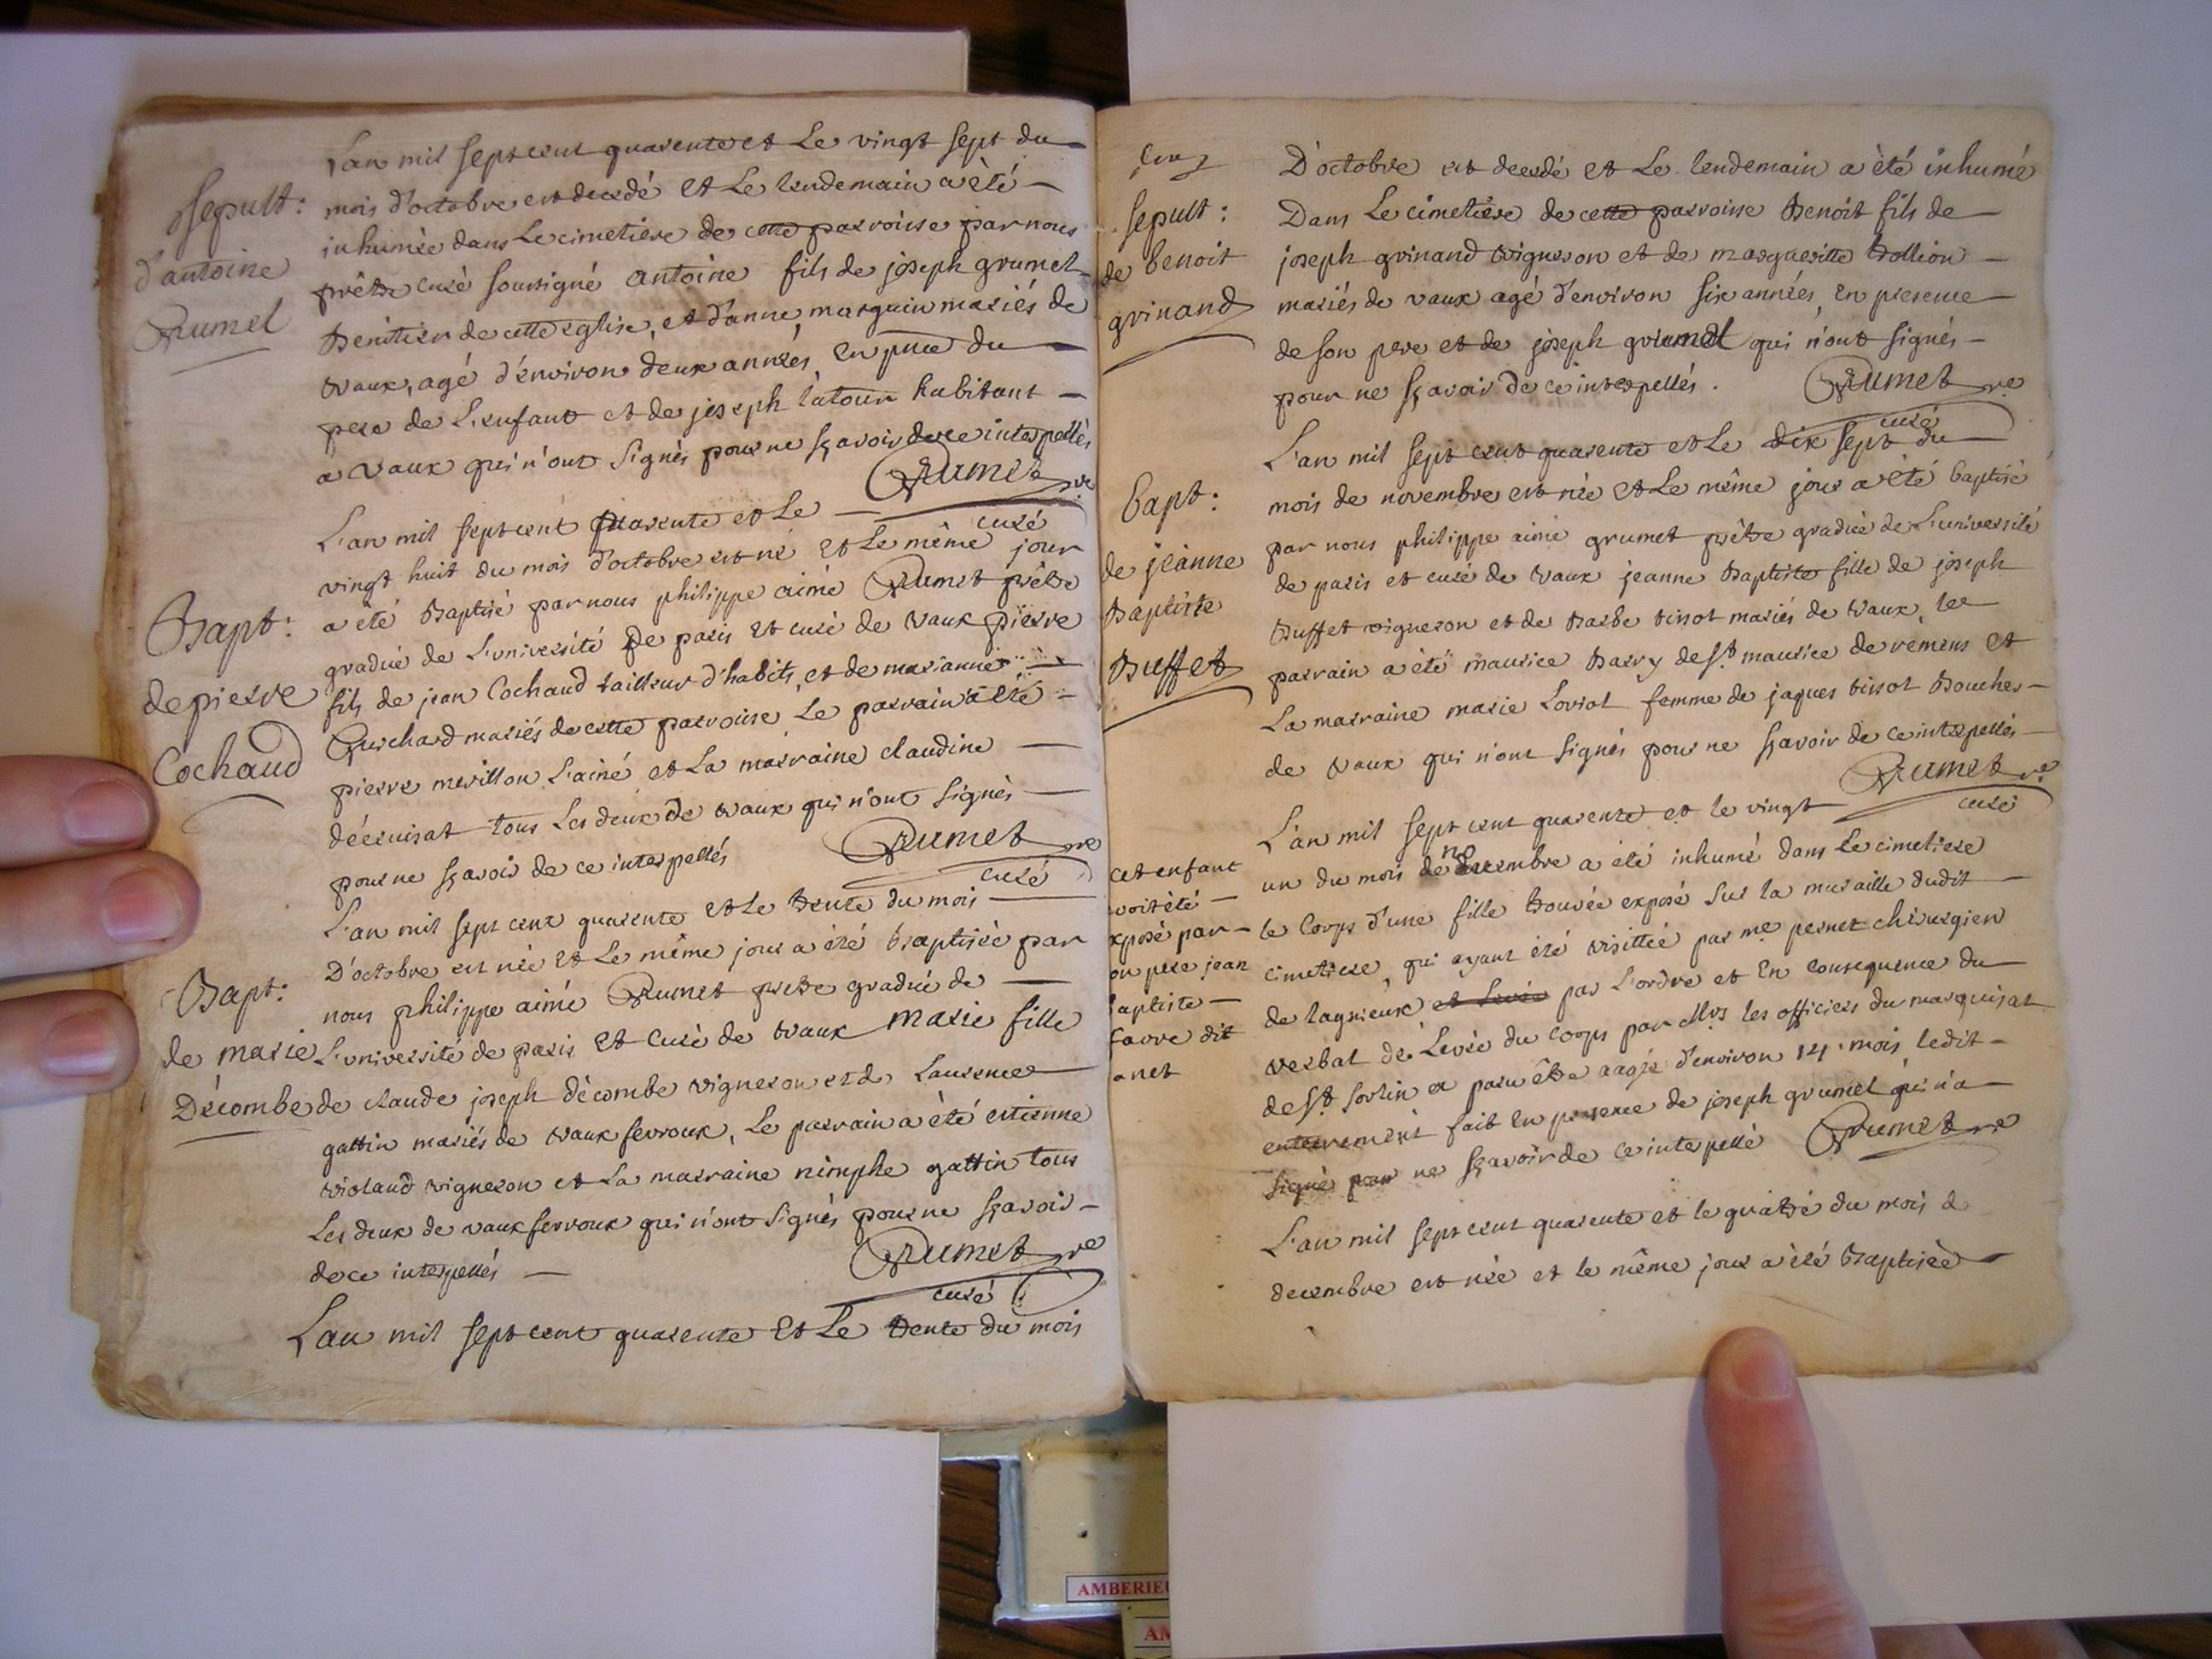 L'an mil sept cent quarente et Le vingt sept du
mois d'octobre est decedé et Le lendemain a été
inhumée dans Le cimetiere de cette parroisse par nous
prêtre curé soussigné antoine fils de joseph grumet
Benitier de cette eglise, et d'anne marguin mariés de
vaux, agé d'environ deux années, en pnce du
pere de L'enfant et de joseph latour habitant
a vaux qui n'ont signés pour ne sçavoir de ce interpellés
Grumet pre
curé
sepult:
d'antoine
Grumel
L'an mil sept cent quarente et Le
vingt huit du mois d'octobre est né et Le même jour
a été Baptisé par nous philippe aimé Grumet prêtre
gradué de L'université de paris et curé de vaux pierre
fils de jean Cochaud tailleur d'habits, et de marianne
Guichard mariés de cette parroisse Le parrain a été
pierre merillon L'ainé et La marraine claudine
décruisat tous Les deux de vaux qui n'ont signés
pour ne sçavoir de ce interpellés
Grumet pre
curé
Bapt:
de pierre
Cochaud
L'an mil sept cent quarente et Le trente du mois
D'octobre est née et Le même jour a été Baptisée par
nous philippe aimé Grumet pretre gradué de
L'université de paris et curé de vaux marie fille
de claude joseph décombe vigneron et de Laurence
gattin mariés de vaux fevroux, Le parrain a été etienne
violand vigneron et La marraine nimphe gattin tous
Les deux de vaux fevroux qui n'ont signés pour ne sçavoir
de ce interpellés
Grumet pre
curé
Bapt:
de marie
Décombe
L'an mil sept cent quarente et Le trente du mois
D'octobre est decedé et Le lendemain a été inhumé
Dans Le cimetiere de cette parroisse Benoit fils de
joseph grinand vigneron et de marguerite trollion
mariés de vaux agé d'environ six années, en presence
de son pere et de joseph grumet qui n'ont signés
pour ne sçavoir de ce interpellés.
Grumet pre
curé
sepult:
de benoit
grinand
L'an mil sept cent quarente et Le dix sept du
mois de novembre est née et Le même jour a été baptisé
par nous philippe aimé grumet prêtre gradué de L'université
de paris et curé de vaux jeanne Baptiste fille de joseph
Buffet vigneron et de Barbe tissot mariés de vaux, Le
parrain a été maurice Barry de St maurice de remens et
La marraine marie Loriot femme de jaques tissot Boucher
de vaux qui n'ont signés pour ne sçavoir de ce interpellés
Grumet pre
curé
bapt:
de jeanne
Baptiste
Buffet
L'an mil sept cent quarente et le vingt
un du mois de novembre a été inhumé dans Le cimetiere
le corps d'une fille trouvée exposé sur la muraille dudit
cimetiere, qui ayant été visittée par me pernet chirurgien
de lagnieux et Levée par L'ordre et en consequence du
verbal de Levée du corps par Mrs les officiers du marquisat
de St sorlin a paru être aagée d'environ 14 mois, ledit
enterrement fait en presence de joseph grumet qui n'a
signé pour ne sçavoir de ce interpellé
Grumet pre
cet enfant
avoit été
exposé par
son pere jean
baptiste
favre dit
L'an mil sept cent quarente et le quatre du mois de
decembre est née et le même jour a été Baptisée
AMBERIEU